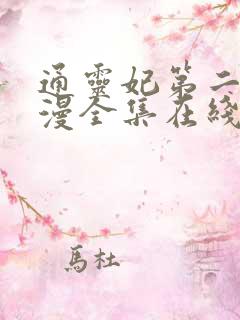 通靈妃第二
漫全集在綫
馬杜